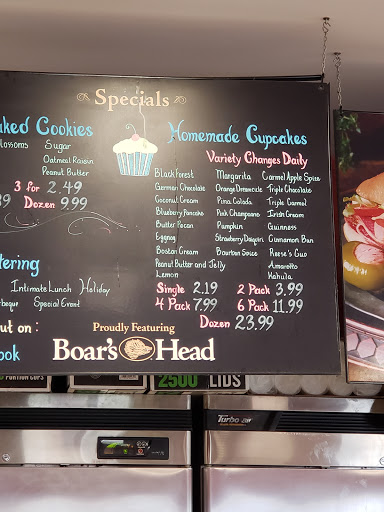 Specials
aked Cookies
lossoms Sugar
Oatmeal Raisin
Peanut Butter
3 for 2.49
89 Dozen 9.99
tering
Intimate Lunch Holiday
beque Special Event
out on :
ook
Homemade Cupcakes
Variety Changes Daily
Black Forest Margarita Carmel Apple Spice
German Chocolate Orange Dreamcicle Triple Chocolate
Coconut Cream Pina Colada Triple Carmel
Blueberry Pancake Pink Champagne Irish Cream
Butter Pecan Pumpkin Guinness
Eggnog Strawberry Daiquiri Cinnamon Bun
Boston Cream Bourbon Spice Reese's Cup
Peanut Butter and Jelly Amaretto
Lemon Kahula
Single 2.19 2 Pack 3.99
4 Pack 7.99 6 Pack 11.99
Dozen 23.99
Proudly Featuring
Boar's Head
PORTION CUPS
2500 LIDS
Turbo air